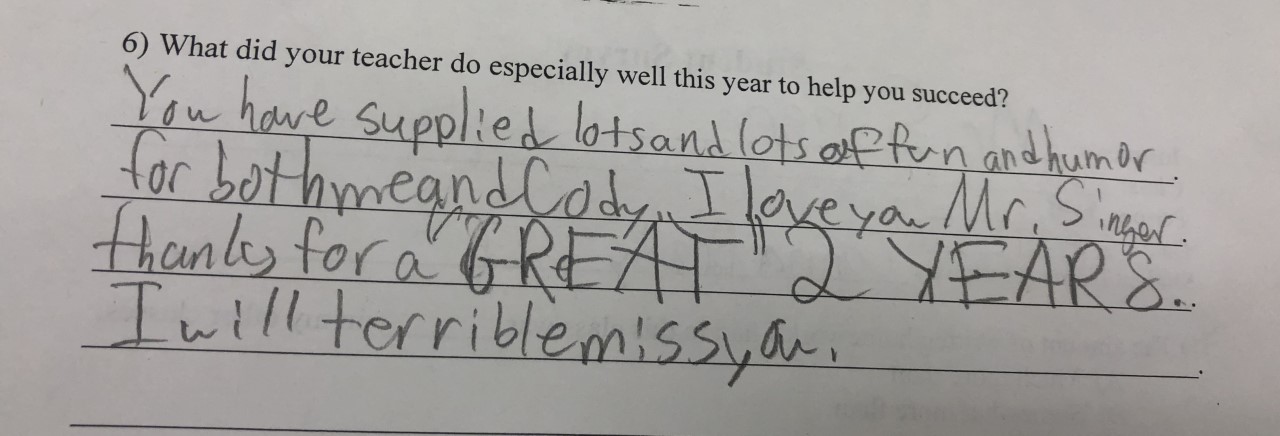 6) What did your teacher do especially well this year to help you succeed?
You have supplied lots and lots of fun and humor
for both me and Cody. I love you Mr. Singer.
thanks for a "GREAT" 2 YEARS..
I will terrible miss you.